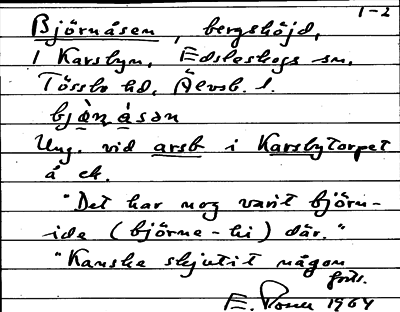 1-2
Björnåsen, bergshöjd,
i Karsbyn, Edsleskogs sn.
Tössbo hd, Älvsb. l.
bjǜ̀ṇ ásən
Ung. vid arsb i Karsbytorpet
å ek.
"Det har nog varit björn-
ide (björna-hi) där."
"Kanske skjutit någon
forts.
E. 1964